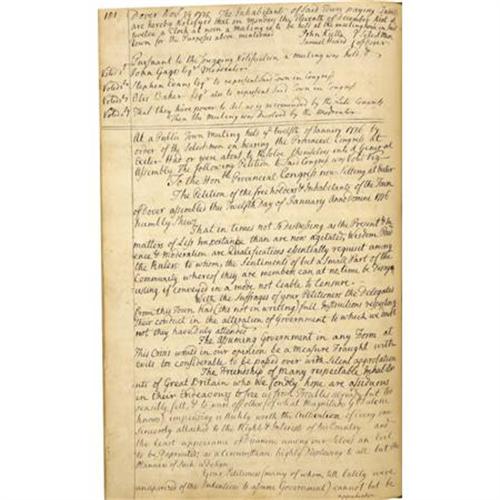 181 Dover Nov. 29 1775. The Inhabitants of Said Town paying Taxes
are hereby Notified that on Monday the Eleventh of December Next at
twelve o Clock at noon a Meeting is to be held at the meeting house in Said
Town for the Purposes above mentioned
John Kielle
Samuel Heard
Select Men of Dover
Pursuant to the foregoing Notification a meeting was held &
Voted 1st John Gage Esqr Moderator
Voted 2d Stephen Evans Esqr to represent Said Town in Congress
Voted 3d Otis Baker Esqr also to represent Said Town in Congress
Voted 4th That they have power to Act as is recommended by the Late Congress
Then the meeting was Dissolved by the Moderator
At a Public Town Meeting held ye twelfth of January 1776 by
order of the Selectmen on hearing the Provincial Congress at
Exeter Had or were about to Resolve themselves into a General
Assembly The following Petition to Said Congress was
To the Honble Provincial Congress now Sitting at Exeter
The Petition of the freeholders & Inhabitants of the Town
of Dover assembled this Twelfth Day of January Anno Domini 1776
humbly Shews
That in times not So Disturbing as the Present &
matters of Less Importance than are now agitated, Wisdom
& Moderation are Qualifications essentially requisite among
the Rulers to whom, the Sentiments of but a Small Part of the
Community whereof they are members can at no time be
if conveyed in a mode not liable to Censure
With the Suffrages of your Petitioners the Delegates
from this Town had (tho not in writing) full Instructions respecting
their conduct in the alteration of Government to which we
not they have duly attended
The Assuming Government in any Form at
This Crisis would in our opinion be a measure Fraught with
evils too considerable to be passed over with Silent approbation
The Friendship of Many respectable Inhabitants
of Great Britain who We fondly hope are assiduous
in their Endeavours to free us from Troubles already but too
sensibly felt, & to ward off others (of what Magnitude
known) impending is highly worth the Cultivation of every one
sincerely attached to the Rights & Interests of his Country and
the least appearance of Disunion among our Selves an Evil
to be Deprecated as a circumstance highly Pleasing to all but the
Your Petitioners (many of whom, till lately were
unapprised of the Intention to assume Government) cannot but be